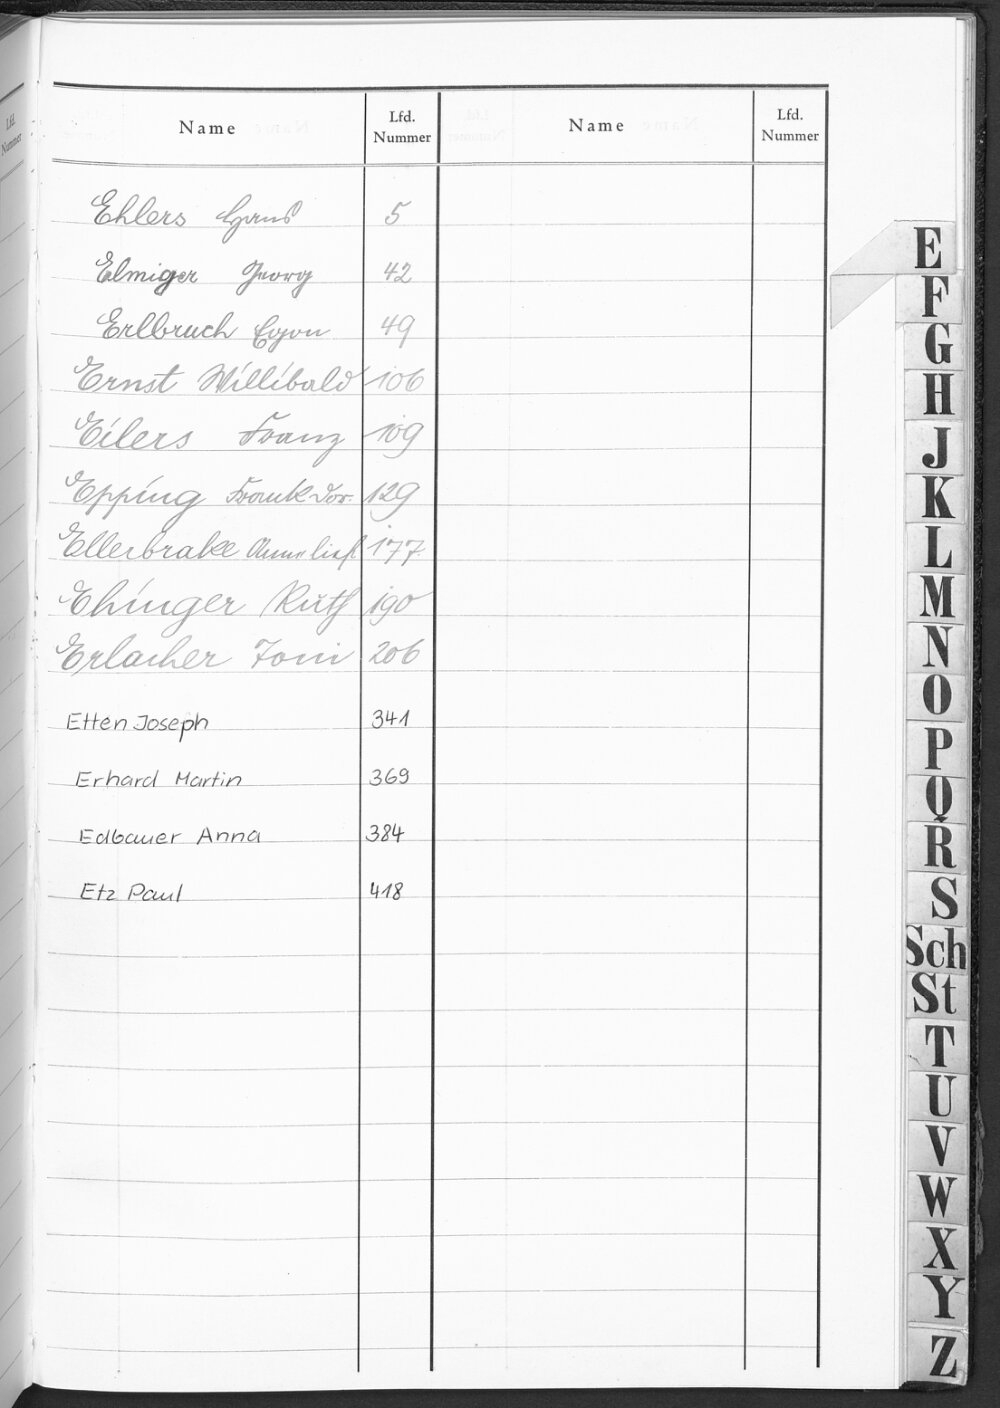 Name Lfd. Nummer Name Lfd. Nummer
Ehlers Hans 5
Elmiger Georg 42
Erlbruch Egon 49
Ernst Willibald 106
Eilers Franz 109
Epping 129
Ellerbrake Anneliese 177
Ehinger Ruth 190
Erlacher Toni 206
Etten Joseph 341
Erhard Martin 369
Edbauer Anna 384
Etz Paul 418
E
F
G
H
J
K
L
M
N
O
P
Q
R
S
Sch
St
T
U
V
W
X
Y
Z